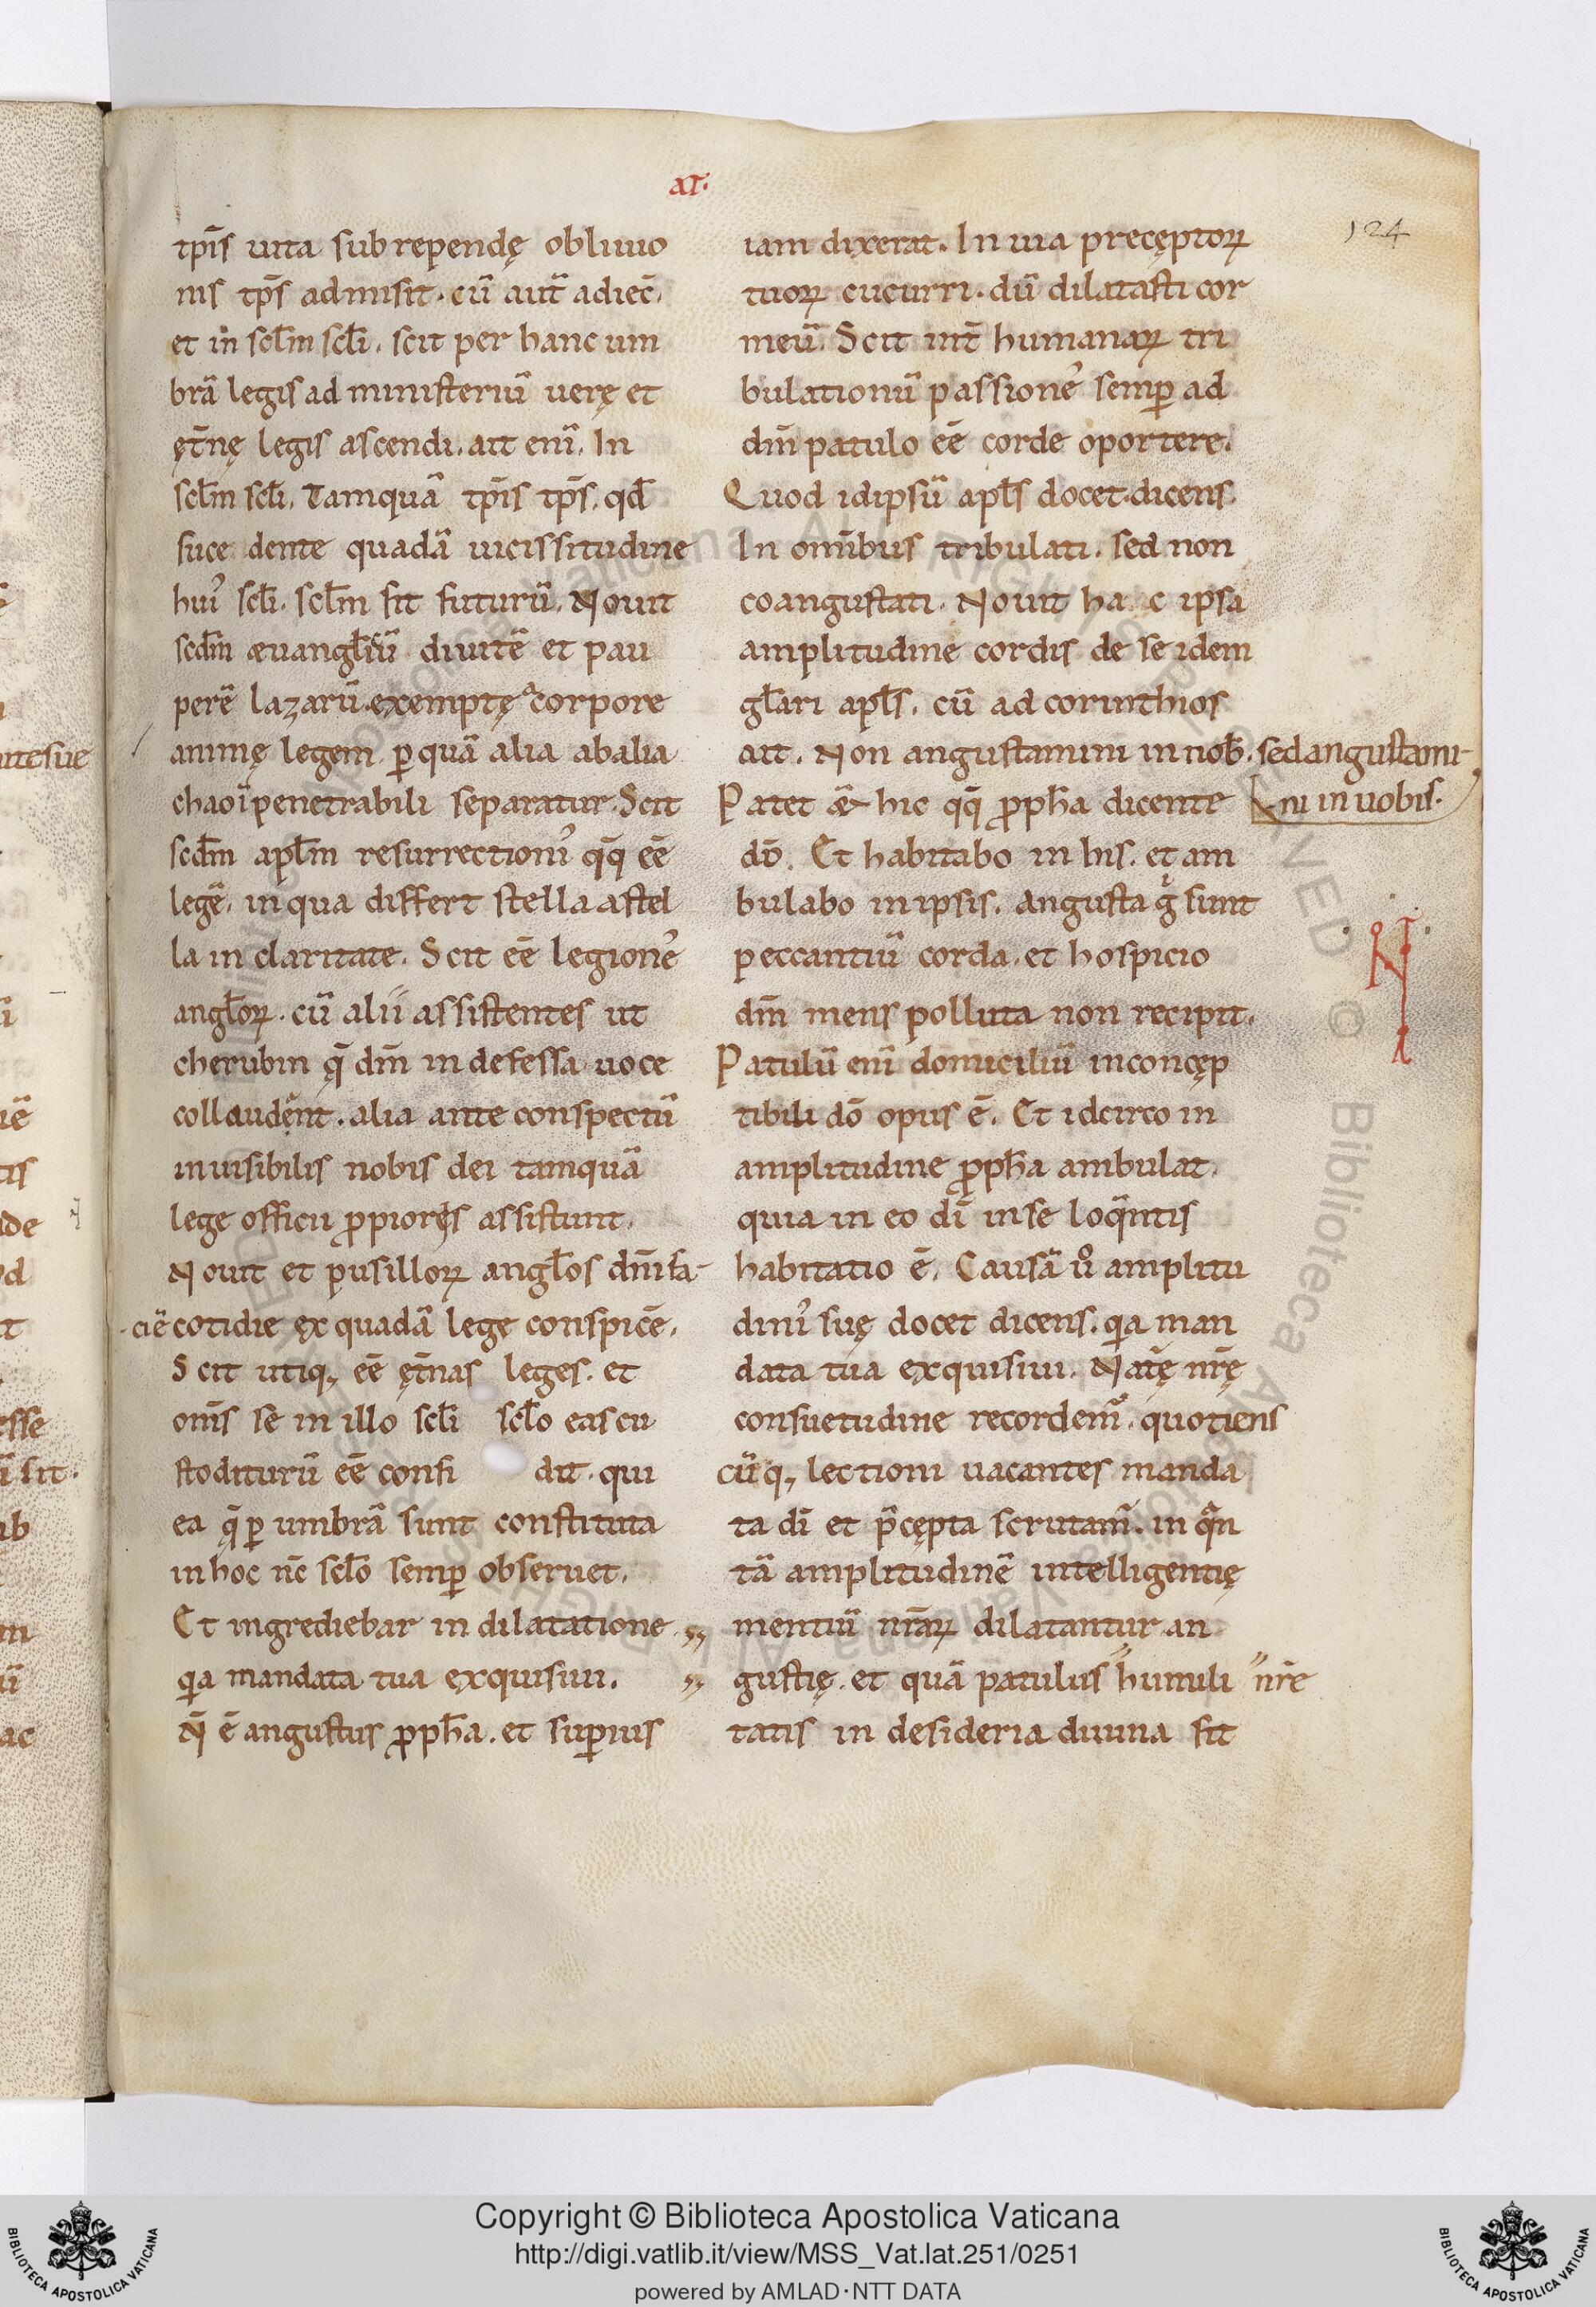 ar.
124
tp̄is uita subrependę obliuio
nis tp̄s admisit. cū aut̄ adiec̄.
et in sc̄lm sc̄li. scit per hanc um
brā legis ad ministeriū uerę et
ęt̄nę legis ascendi. ait enī. In
sc̄lm sc̄li. Tamquā tp̄is tp̄s. qđ
succedente quadā uicissitudine
hui᾽ sc̄li. sc̄lm sit futurū. Nouit
scđm æuangl̄iū diuitē et pau
perē lazarū. exemptę a corpore
animę legem. ꝑ quā alia ab alia
chao īpenetrabili separatur. Scit
scđm apl̄m resurrectioni᾽ qq̄ eē
legē. in qua differt stella a stel
la in claritate. Scit eē legione᾽
angl̄oꝝ. cū alii assistentes ut
cherubin q̄ dn̄m indefessa uoce
collaudent. alia ante conspectū
inuisibilis nobis dei tamquā
lege officii ꝓpiores assistunt.
Nouit et pusilloꝝ angl̄os dn̄i fa-
-ciē cotidie ex quadā lege conspicē.
Scit utiq; eē ęt̄nas leges. et
om̄s se in illo sc̄li sc̄lo eas cu
stoditurū eē confidit. qui
ea q̄ ꝑ umbrā sunt constituta
in hoc nc̄ sc̄lo semꝑ obseruet.
Et ingrediebar in dilatatione
q̄a mandata tua exquisiui.
N̄ ē angustus ꝓph̄a. et suꝑius
iam dixerat. In uia pręceptoꝝ
tuoꝝ cucurri. dū dilatasti cor
meū. Scit int̄ humanaꝝ tri
bulationū passione᾽ semꝑ ad
dm̄ patulo eē corde oportere.
Quod idipsū apl̄s docet. dicens.
In om̄ibus tribulati. sed non
coangustati. Nouit hac ipsa
amplitudine cordis de se idem
gl̄ari apl̄s. cū ad corinthios
ait. Non angustamini in nob̄. sed angustami-
-ni in uobis.
Patet &̄ hic qq̄ ꝓph̄a dicente
dō. Et habitabo in his. et am
bulabo in ipsis. Angusta g᾽ sunt
peccantiū corda. et hospicio
dm̄ mens polluta non recipit.
Patulū enī domiciliū inconcęp
tibili dō opus ē. Et idcirco in
amplitudine ꝓph̄a ambulat.
quia in eo dī in se loq̄ntis
habitatio ē. Causā uͦ amplitu
dini᾽ suę docet dicens. q̄a man
data tua exquisiui. Natę nr̄ę
consuetudine recordem᾽. quotiens
cūq; lectioni uacantes manda
ta dī et p̄cepta scrutam̄. in q̄n
tā amplitudinē intelligentię
mentiū nr̄aꝝ dilatantur an
gustię. et quā patulus humili nr̄e
tatis in desideria diuina sit
Copyright © Biblioteca Apostolica Vaticana
http://digi.vatlib.it/view/MSS_Vat.lat.251/0251
powered by AMLAD·NTT DATA
BIBLIOTECA APOSTOLICA VATICANA
BIBLIOTECA APOSTOLICA VATICANA